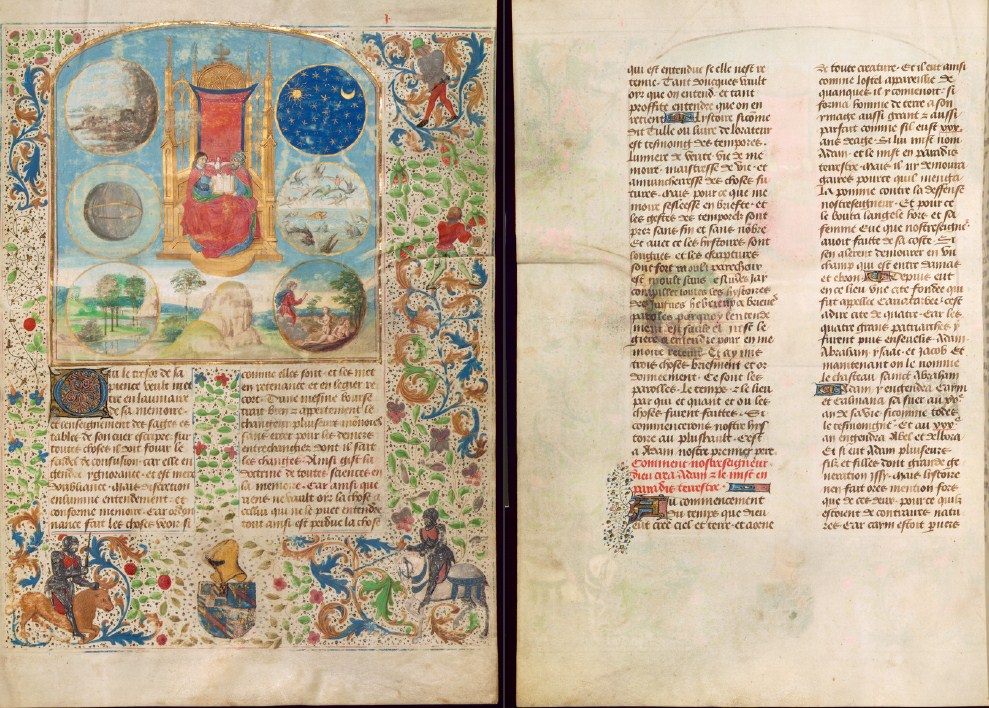 Qui le tresor de sa
pience veult met
tre en laumaire
de sa memoire.
et lenseignement des sages es
tables de son cuer escripre sur
toutes choses il doit fouir le
fardel de confusion. car elle en
gendre ignorance et est mere
doubliance. Mais discretion
enlumine entendement. et
conforme memoire. Car ordon
nance fait les choses veoir si
comme elles sont. et les met
en retenance et en segret re
coer. Dune mesme bourse
trait bien et apertement le
changeur plusieurs monnoies
sans errer pour les deniers
entrechangier dont il fait
les changes. Ainsi gist la
doctrine de toutes sciences en
la memoire. Car ainsi que
riens ne vault or la chose a
cellui qui ne le puet entendre
tout ainsi est perdue la chose
qui est entendue se elle nest re
tenue. Tant doncques vault
oir que on entend. et tant
proffite entendre que on en
retient Lystoire sicome
dit Tulle ou livre de lorateur
est tesmoing des temps.
lumiere de verite vie de me
moire. maistresse de vie. et
annuncheresse des choses fu
tures. Mais pour ce que me
moire seslesse en briefte. et
les gestes des temps sont
pres sans fin et sans nobre
Et avec ce les hystoires sont
longues. et les escriptures
sont fort
paroles pourquoy lentende
ment est
moire retenir. Cy ay mis
trois choses briefment et or
donneement. Ce sont les
parolles. Le temps. et le lieu
par qui et quant et ou les
choses furent faittes. Si
commencerons nostre hys
toire au plushault. Cest
a Adam nostre premier pere.
Comment nostreseigneur
dieu crea Adam et le mist en
paradis terrestre.
Au commencement
du temps que dieu
eut cree ciel et terre. et aorne
de toute creature. Et il eut ainsi
comme lostel appareillie de
quanques il y convenoit. si
forma homme de terre a son
ymage aussi grant et aussi
parfait comme sil eust xxx.
ans deage. Si lui mist nom
Adam. et le mist en paradis
terrestre. Mais il ny demoura
gaires pource quil menga
la pomme contre la deffense
nostreseigneur. Et pour ce
le bouta langele fors. et sa
femme Eve que nostreseigne
avoit faitte de sa coste. Si
sen alerent demourer en un
champ qui est entre Damas
et ebron. Depuis eut
en ce lieu une cite fondee qui
fut appellee Cariatharbe. cest
a dire cite de quatre. Car les
quatre grans patriarches y
furent puis ensevelis. Adam
Abraham. ysaac. et Jacob. Et
maintenant on le nomme
le chasteau sainct Abraham
Adam y engendra Caym
et Calmana sa suer au xve
an de sa vie sicomme
le tesmoigne. Et au xxxe
an engendra Abel et delbora.
Et si eut Adam plusieurs
filz et filles dont grande ge
neration yssy. Mais lystoire
nen fait ores mention fors
que de ces deux. pource quilz
estoient de contraires natu
res. Car caym estoit pervers